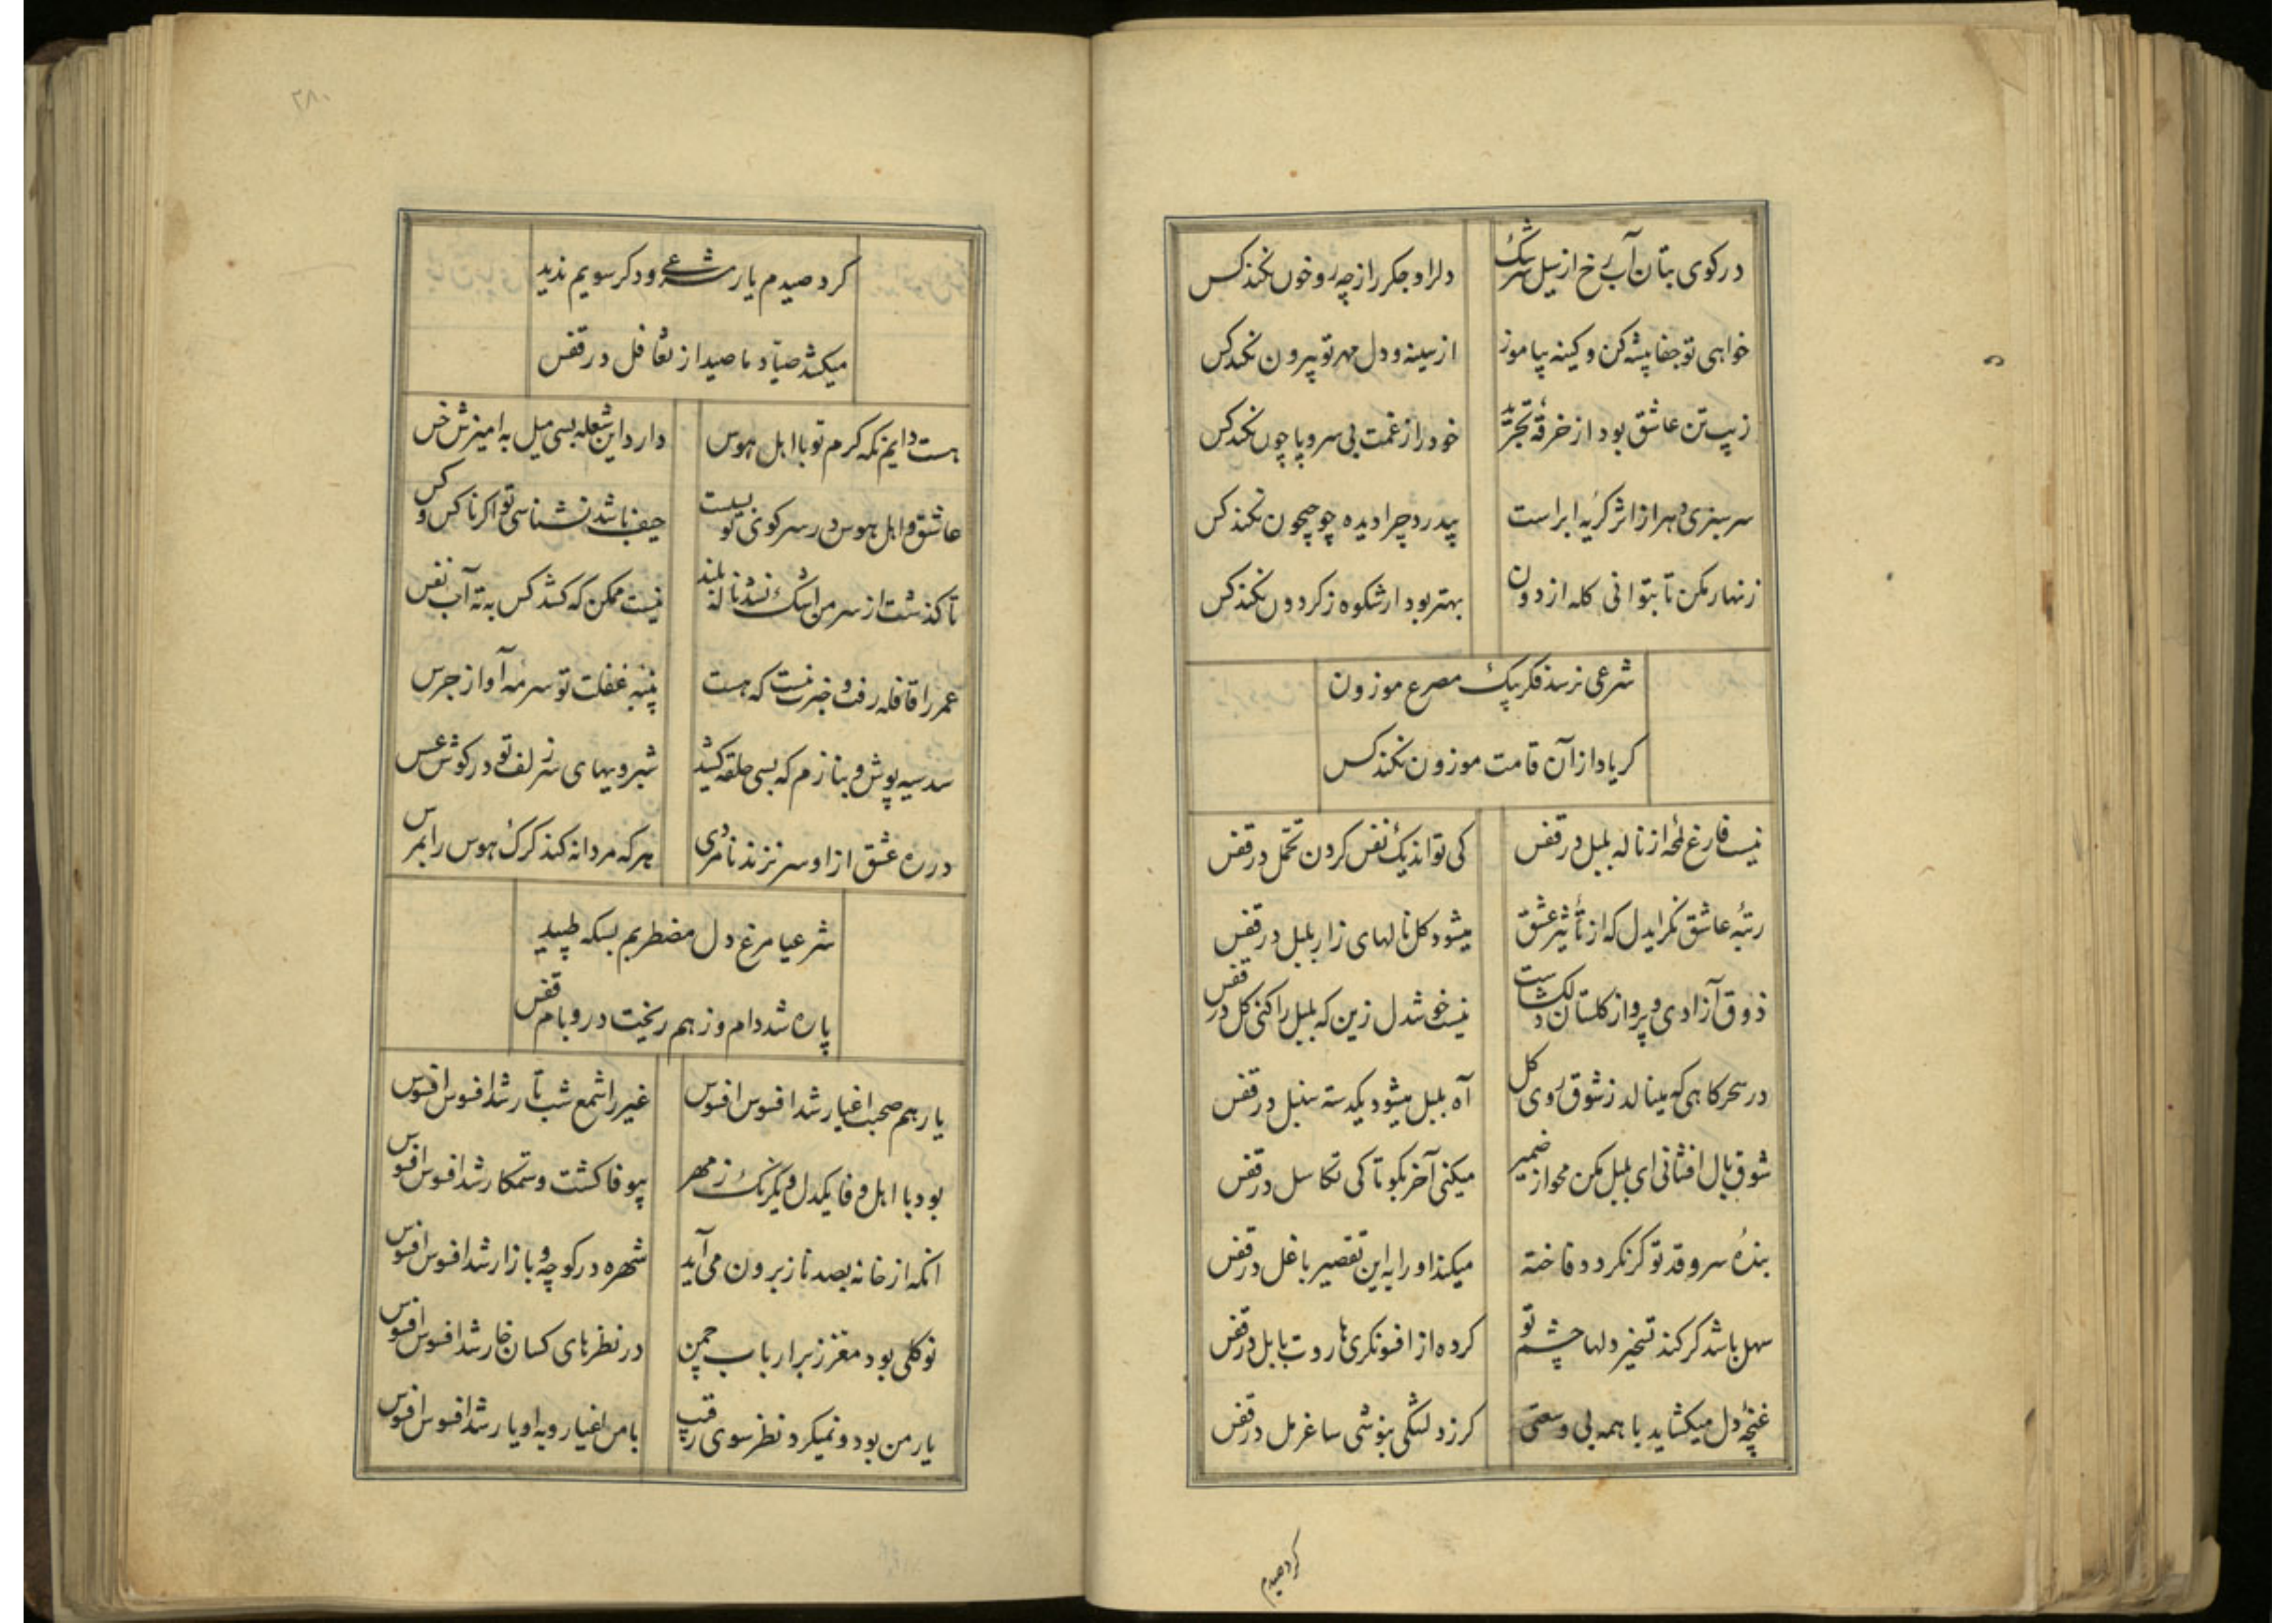 در کوی بتان آب رخ از سیل سرشک دلرا و جکر را ز چه رو خون نکند کس
خواهی تو جفا پیشه کن و کینه بیاموز از سینه و دل مهر تو بیرون نکند کس
زیب تن عاشق بود از خرقهٔ تجرید خود را ز غمت بی سر و پا چون نکند کس
سرسبزی دهر از اثر کریه ابر است بیدرد چرا دیده چو جیحون نکند کس
زنهار مکن تا بتوانی کله از دون بهتر بود ار شکوه ز کردون نکند کس
شرعی نرسد فکر بیک مصرع موزون
کر یاد از آن قامت موزون نکند کس
نیست فارغ لحظهٔ از ناله بلبل در قفس کی تواند یک نفس کردن تحمل در قفس
رتبهٔ عاشق نکر ایدل که از تأثیر عشق میشود کل نالهای زار بلبل در قفس
ذوق آزادی و پرواز کلستان دلکشاست نیست خوشدل زین که بلبل را کنی کل در قفس
در سحرکاهی که مینالد ز شوق روی کل آه بلبل میشود یکدسته سنبل در قفس
شوق بال افشانی ای بلبل مکن محو از ضمیر میکنی آخر بکو تا کی تکاسل در قفس
بندهٔ سرو قد تو کر نکردد فاخته میکند او را به این تقصیر با غل در قفس
سهل باشد کر کند تسخیر دلها چشم تو کرده از افسونکریها روت بابل در قفس
غنچهٔ دل میکشاید با همه بی وسعتی کر ز دلتنکی بنوشی ساغر مل در قفس
کرد صیدم
۲۸۰
کرد صیدم یار شرعی و دکر سویم ندید
میکشد صیّاد ما صید از تغافل در قفس
هست دایم نکه کرم تو با اهل هوس دارد این شعله بسی میل به آمیزش خس
عاشق و اهل هوس در سر کوی تو بسیست حیف باشد نشناسی تو اکر ناکس و کس
تا کذشت از سر من اشک نشد ناله بلند نیست ممکن که کشد کس به ته آب نفس
عمر را قافله رفت و خبرت نیست که هست پنبه غفلت تو سرمه آواز جرس
شد سیه پوش و بنازم که بسی حلقه کشید شبرویهای سر زلف تو در کوش عسس
در ره عشق از او سر نزند نامردی هر که مردانه کند کرک هوس را بمرس
شرعیا مرغ دل مضطربم بسکه طپید
پاره شد دام و ز هم ریخت در و بام قفس
یار هم صحبت اغیار شد افسوس افسوس غیر را شمع شب تار شد افسوس افسوس
بود با اهل وفا یکدل و یکرنک ز مهر بیوفا کشت و ستمکار شد افسوس افسوس
انکه از خانه بصد ناز برون می آید شهره در کوچه و بازار شد افسوس افسوس
نوکلی بود معزز بر ارباب چمن در نظرهای کسان خار شد افسوس افسوس
یار من بود و نمیکرد نظر سوی رقیب با من اغیار و به او یار شد افسوس افسوس